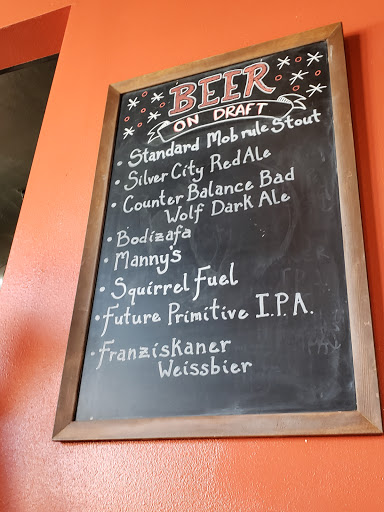 BEER
ON DRAFT
• Standard Mobrule Stout
• Silver City Red Ale
• Counter Balance Bad
Wolf Dark Ale
• Bodizafa
• Manny's
• Squirrel Fuel
• Future Primitive I.P.A.
• Franziskaner
Weissbier